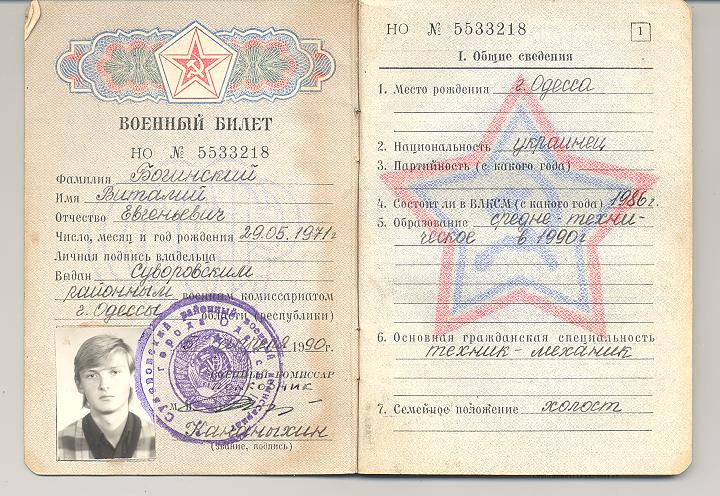 ВОЕННЫЙ БИЛЕТ
НО № 5533218
Фамилия Богинский
Имя Виталий
Отчество Евгеньевич
Число, месяц и год рождения 29.05.1971г
Личная подпись владельца
Выдан Суворовским
районным военным комиссариатом
г. Одессы области (республики)
1990 г.
ВОЕННЫЙ КОМИССАР
полковник
М.
Кананыхин
(звание, подпись)
Суворовский районный военный комиссариат
города Одессы
НО № 5533218
1
I. Общие сведения
1. Место рождения г. Одесса
2. Национальность украинец
3. Партийность (с какого года)
4. Состоит ли в ВЛКСМ (с какого года) 1986г.
5. Образование средне-техни-
ческое в 1990г
6. Основная гражданская специальность
техник-механик
7. Семейное положение холост